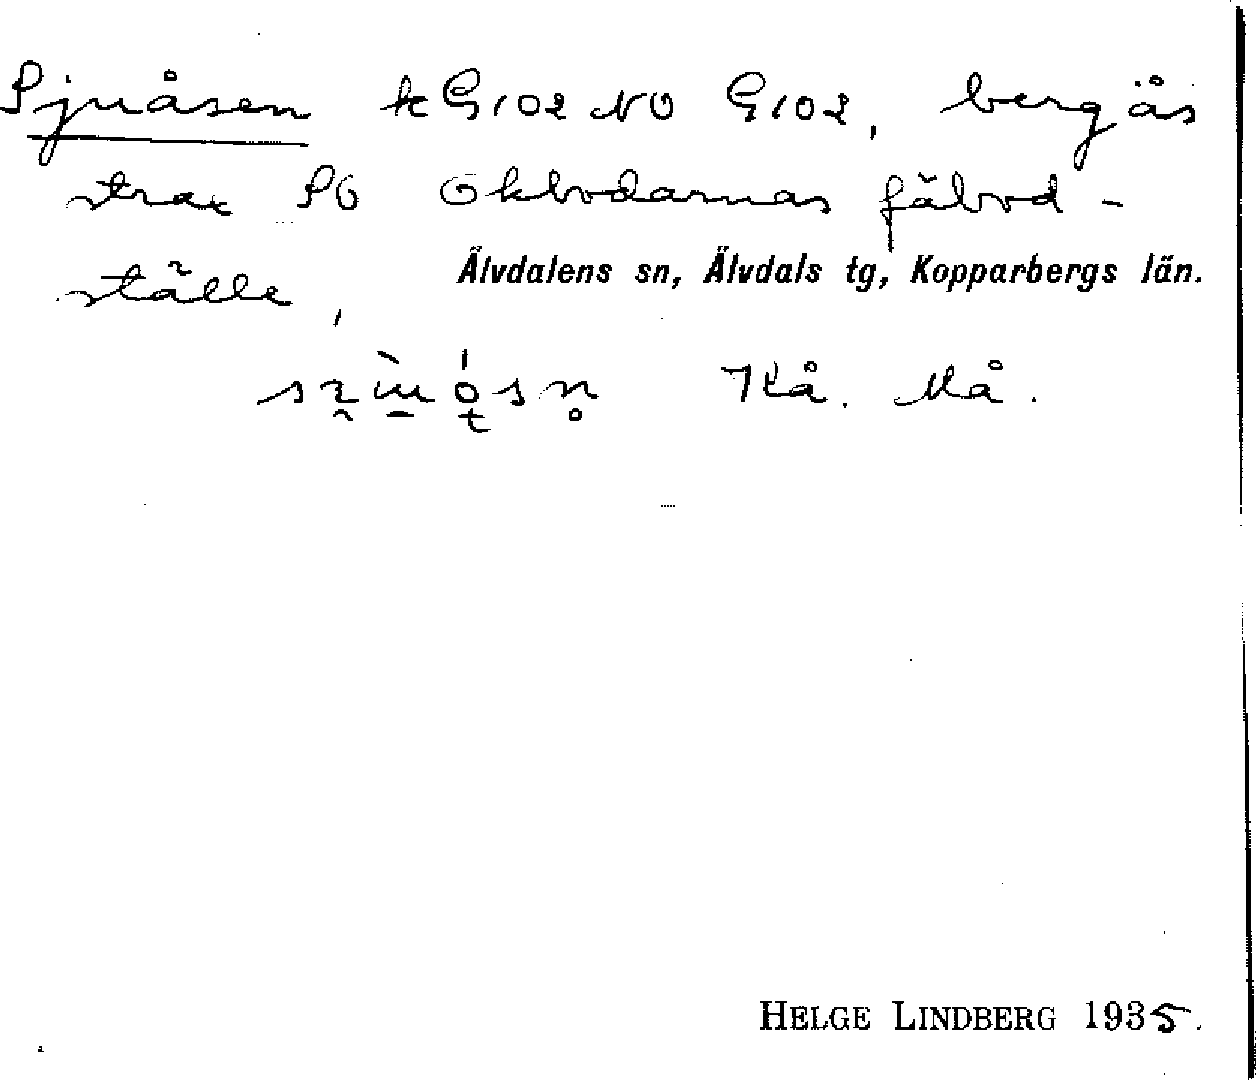 Sjuåsen kG102 NO G102, bergås
strax SO Okbodarnas fäbod-
ställe,
Älvdalens sn, Älvdals tg, Kopparbergs län.
Kå. Må.
HELGE LINDBERG 1935.